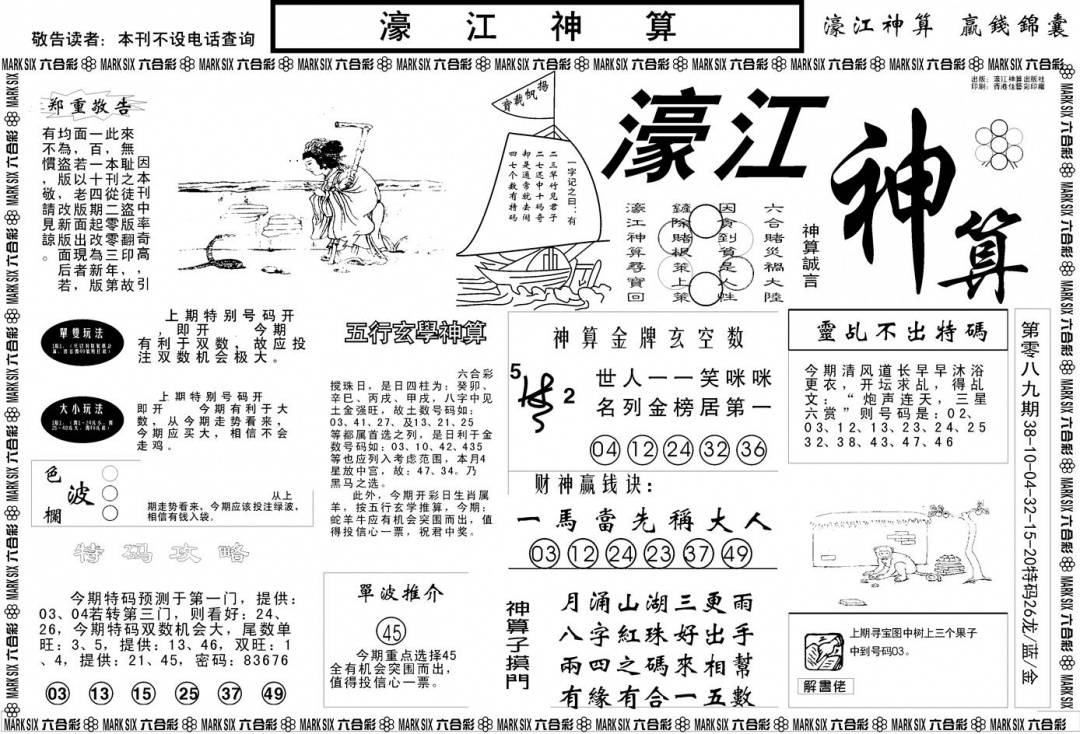 敬告读者：本刊不设电话查询
濠江神算
濠江神算 贏錢錦囊
MARK SIX 六合彩
出版：濠江神算出版社
印刷：香港佳藝彩印廠
郑重敬告
因本刊中率奇高，引
來無恥之徒盜翻印，故
此，本刊從二零零三年第
一百一十四期起改為新版
面，若以老版面出現，后
均為盜版，改新版面者若
有不慣，敬請見諒。
揚帆載寶
一字记之曰：有
二三草竹见君子
二七还中十码奇
却是通常就去闹
四七个数有特码
濠江
神算
六合賭災禍大陸
因貪到貧是人性
鏟除賭根策上策
濠江神算尋寶回
神算誠言
單雙玩法
上期特别号码开
，即开 、今期
有利于双数，故应投
注双数机会极大。
大小玩法
上期特别号码开
即开 今期有利于大
数，从今期走势看来，
今期应买大，相信不会
走鸡。
色波欄
从上
期走势看来，今期应该投注绿波，
相信有钱入袋。
特码攻略
今期特码预测于第一门，提供：
03、04若转第三门，则看好：24、
26，今期特码双数机会大，尾数单
旺：3、5，提供：13、46，双旺：1
、4，提供：21、45，密码：83676
03 13 15 25 37 49
五行玄學神算
六合彩
搅珠日，是日四柱为：癸卯、
辛巳、丙戌、甲戌，八字中见
土金强旺，故土数号码如：
03、41、27、及13、21、25
等都属首选之列，是日利于金
数号码如：03、10、42、435
等也应列入考虑范围，本月4
星放中宫，故：47、34。乃
黑马之选。
此外，今期开彩日生肖属
羊，按五行玄学推算，今期：
蛇羊牛应有机会突围而出，值
得投信心一票，祝君中奖。
單波推介
45
今期重点选择45
全有机会突围而出，
值得投信心一票。
神算金牌玄空数
5
2
世人一一笑咪咪
名列金榜居第一
04 12 24 32 36
财神赢钱诀：
一馬當先稱大人
03 12 24 23 37 49
神算子摸門
月涌山湖三更雨
八字紅珠好出手
兩四之碼來相幫
有緣有合一五數
靈乩不出特碼
今期清风道长早早沐浴
更衣，开坛求乩，得乩
文：“炮声连天，三星
六赏”则号码是：02、
03、12、13、23、24、25
32、38、43、47、46
上期寻宝图中树上三个果子
中到号码03。
解畫佬
第零八九期38-10-04-32-15-20特码26龙/蓝/金